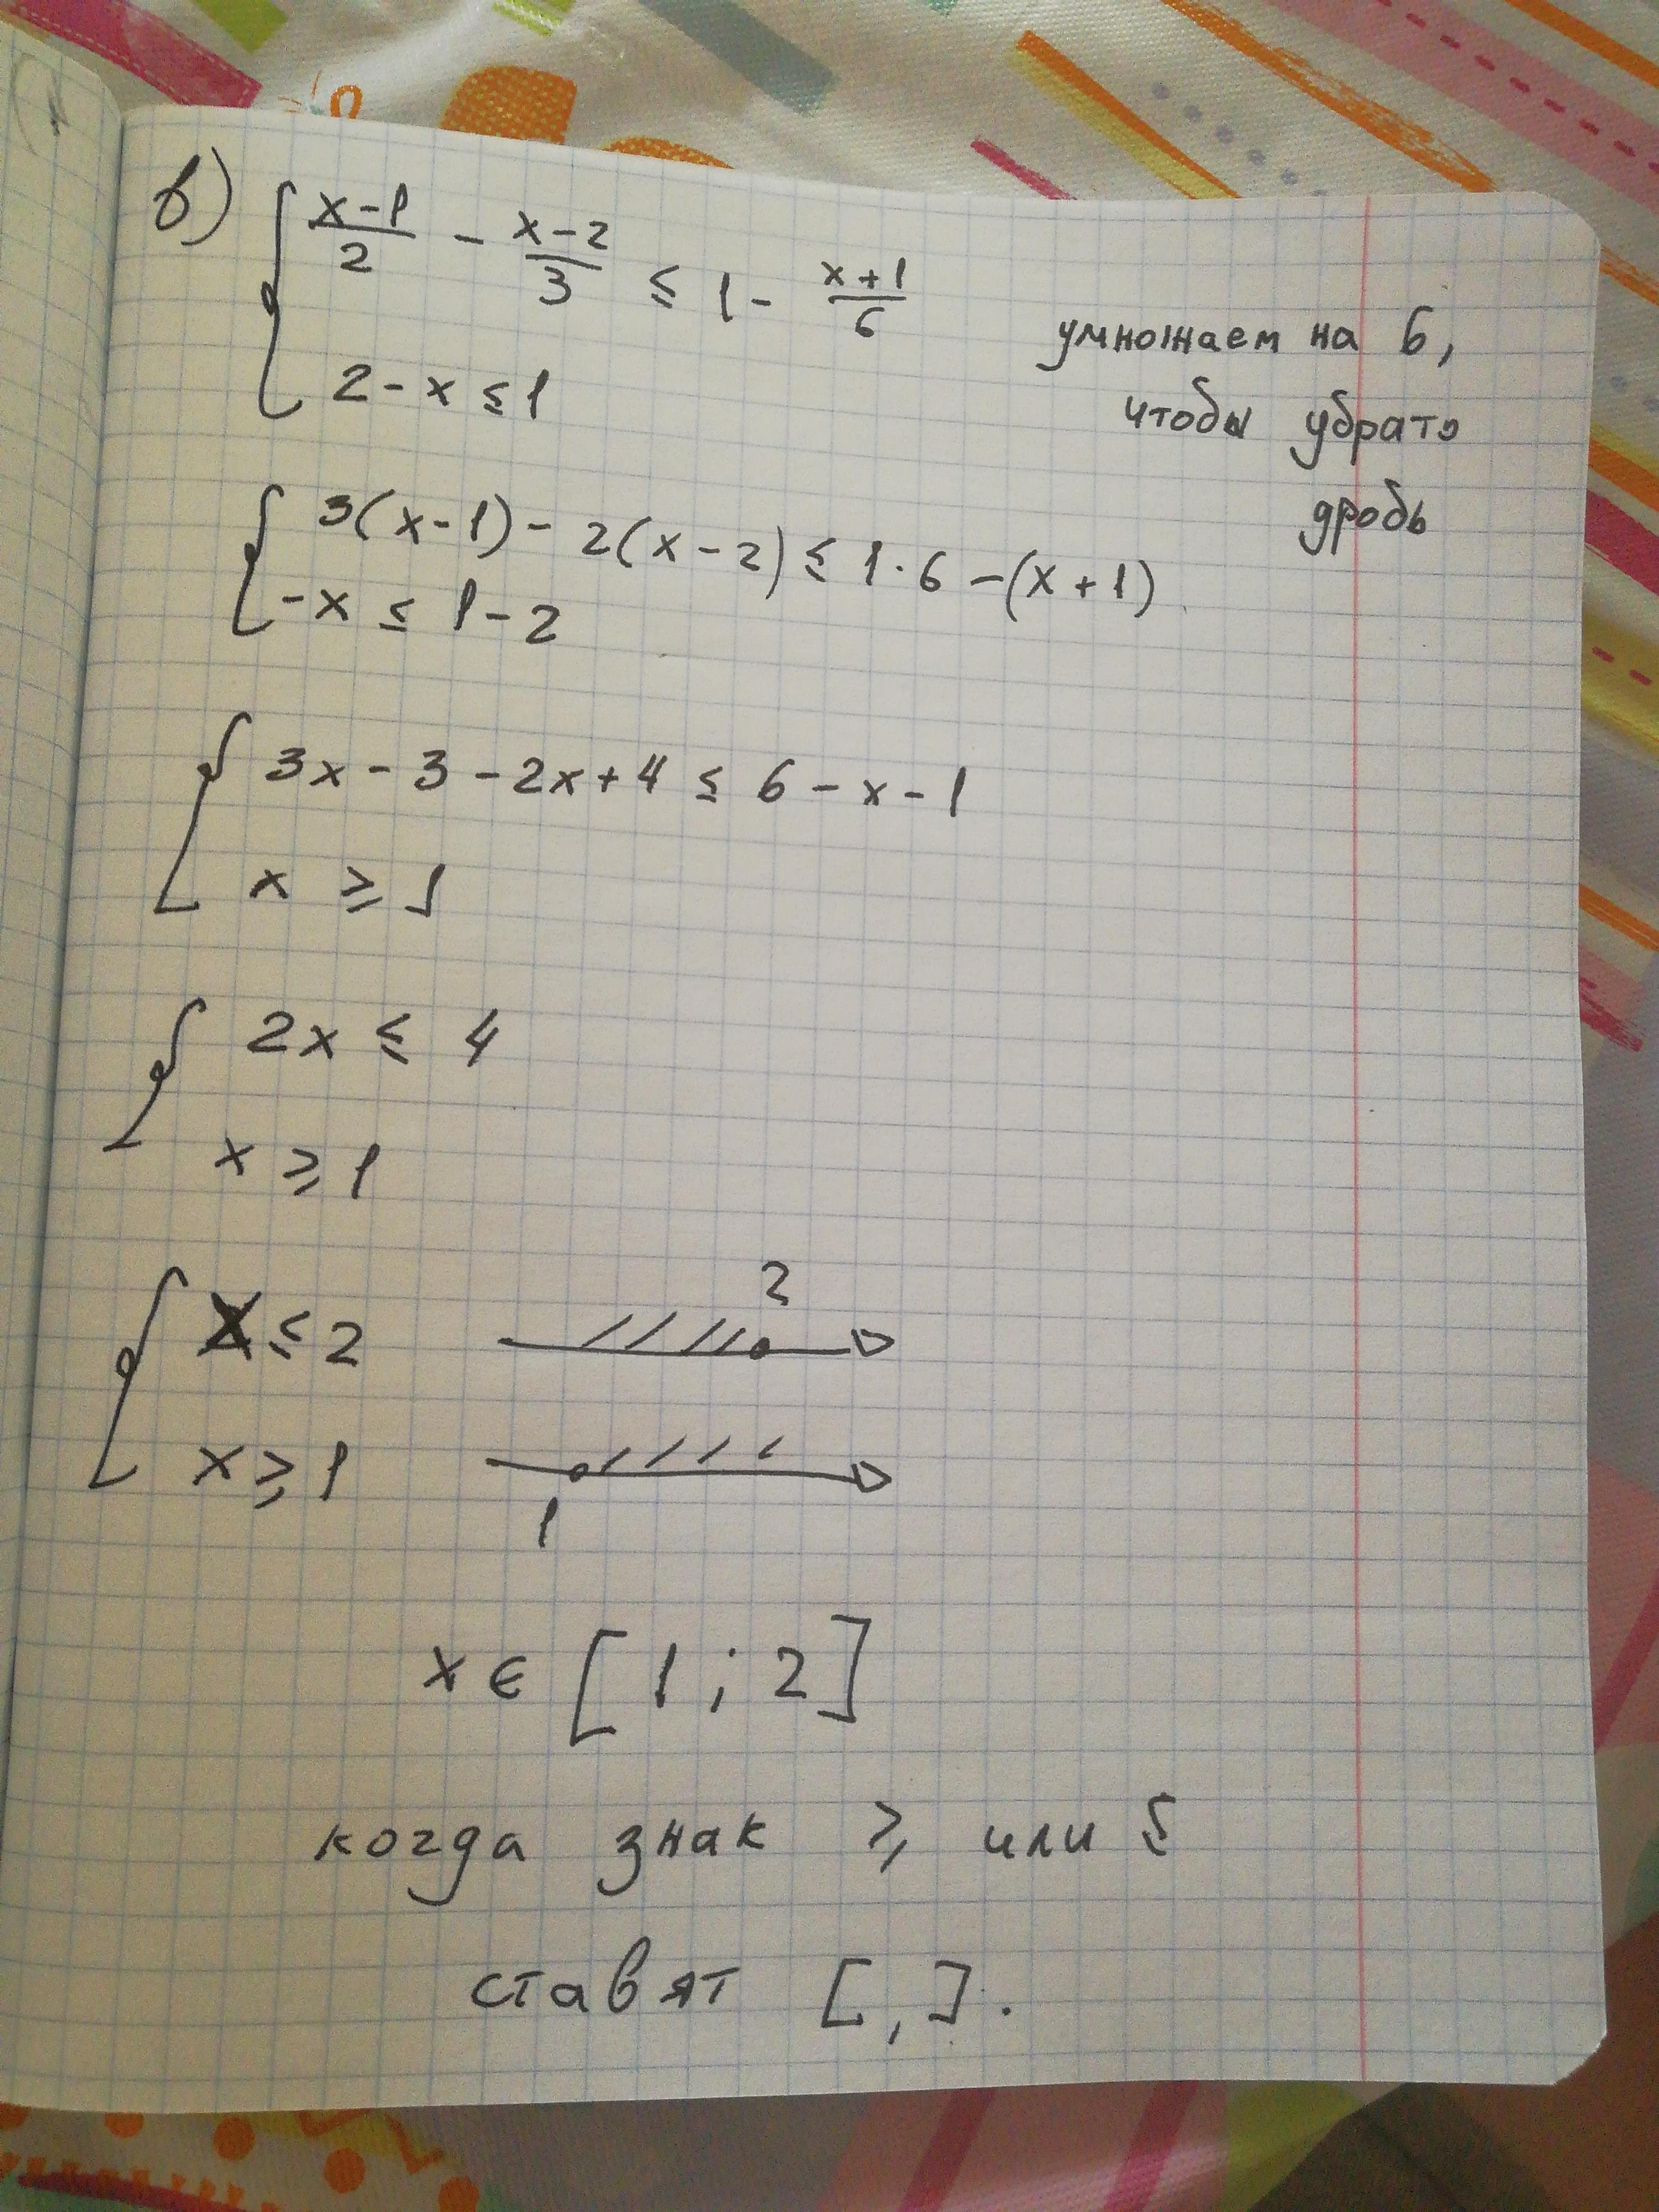 в) { (x-1)/2 - (x-2)/3 ≤ 1 - (x+1)/6
2 - x ≤ 1
умножаем на 6,
чтобы убрать
дробь
{ 3(x-1) - 2(x-2) ≤ 1·6 - (x+1)
-x ≤ 1-2
{ 3x - 3 - 2x + 4 ≤ 6 - x - 1
x ≥ 1
{ 2x ≤ 4
x ≥ 1
{ x ≤ 2 2
x ≥ 1 1
x ∈ [1; 2]
когда знак ≥ или ≤
ставят [ , ].